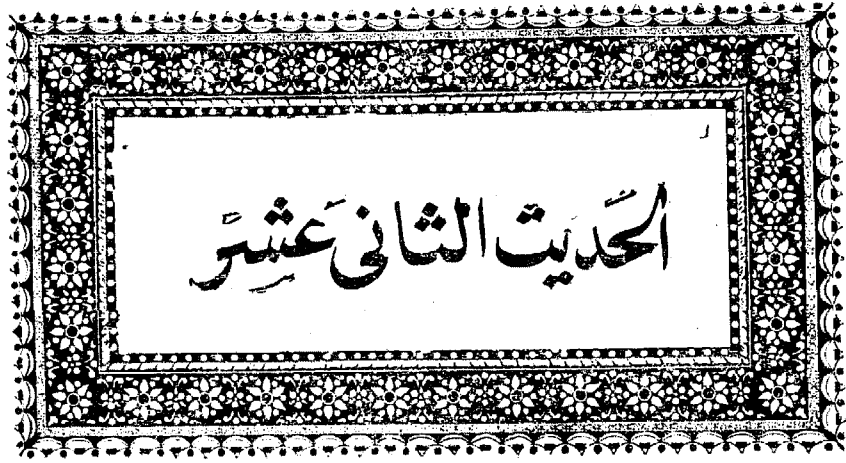 الحَديث الثاني عَشِر